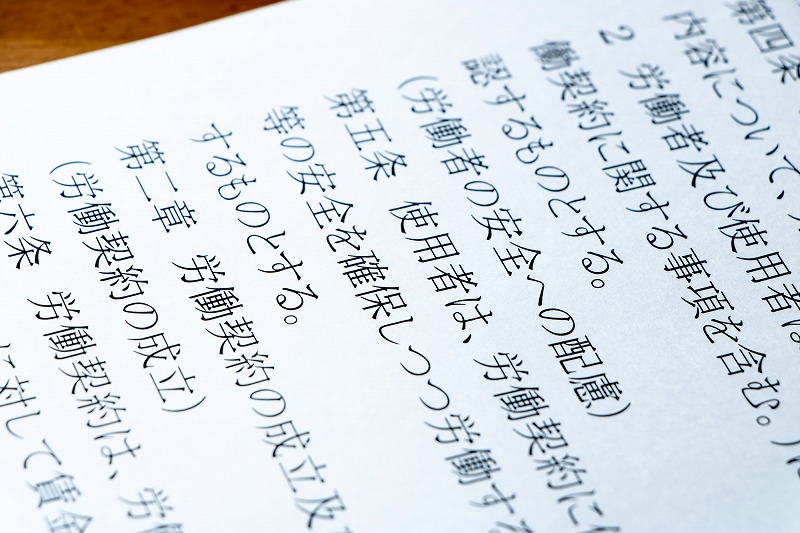 第四条
内容について、
2 労働者及び使用者は
働契約に関する事項を含む。)に
認するものとする。
(労働者の安全への配慮)
第五条 使用者は、労働契約に
等の安全を確保しつつ労働する
するものとする。
第二章 労働契約の成立及
(労働契約の成立)
第六条 労働契約は、労
に対して賃金